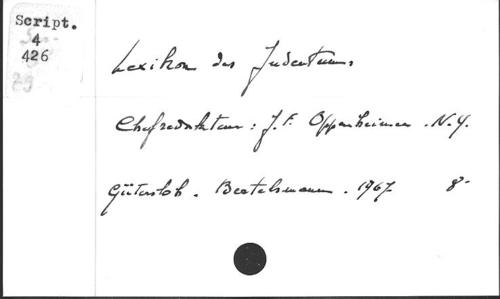 Script.
4
426
Lexikon des Judentums
Chefredakteur: J. F. Oppenheimer. N.Y.
Gütersloh. Bertelsmann. 1967 8-